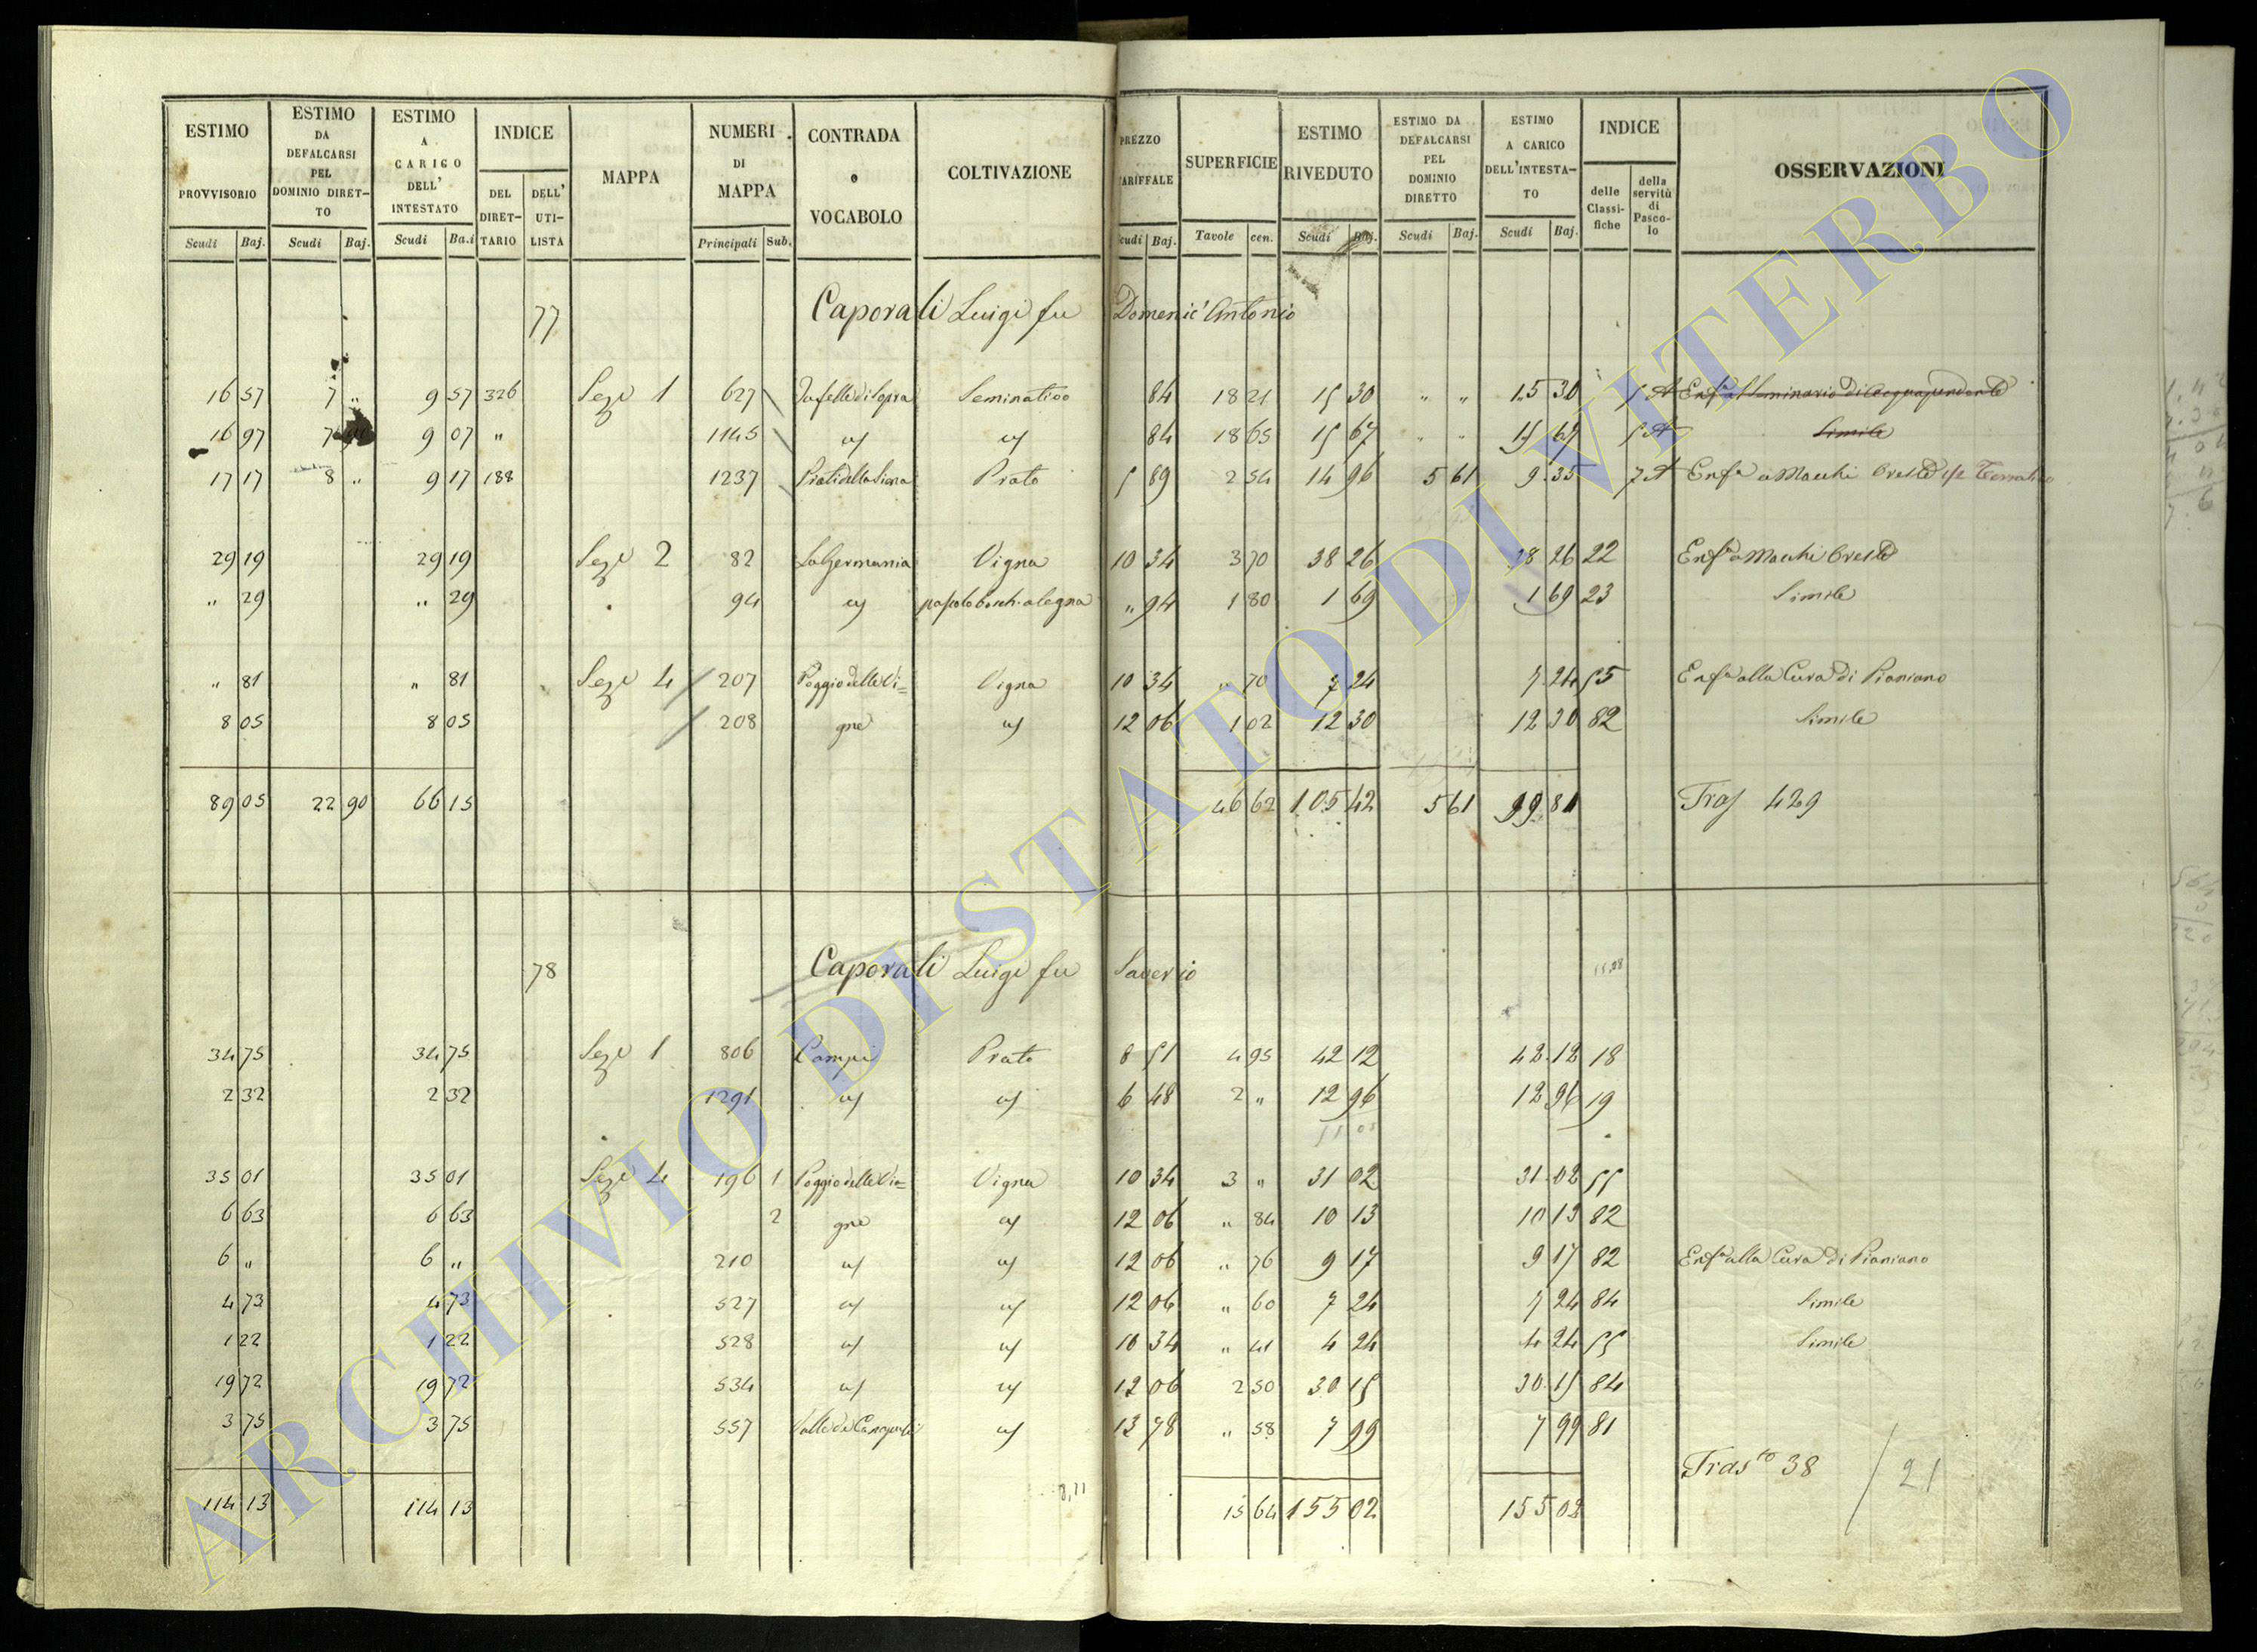 ESTIMO PROVVISORIO Scudi Baj.
ESTIMO DA DEFALCARSI PEL DOMINIO DIRETTO Scudi Baj.
ESTIMO A CARICO DELL' INTESTATO Scudi Ba.i
INDICE DEL DIRETTARIO DELL' UTILISTA
MAPPA
NUMERI DI MAPPA Principali Sub.
CONTRADA o VOCABOLO
COLTIVAZIONE
PREZZO TARIFFALE Scudi Baj.
SUPERFICIE Tavole cen.
ESTIMO RIVEDUTO Scudi Baj.
ESTIMO DA DEFALCARSI PEL DOMINIO DIRETTO Scudi Baj.
ESTIMO A CARICO DELL'INTESTATO Scudi Baj.
INDICE delle Classifiche della servitù di Pascolo
OSSERVAZIONI
77 Caporali Luigi fu Domenic' Antonio
16 57 7 " 9 57 326 Sez.e 1 627 di Sopra Seminativo 84 18 21 15 30 " " 15 30 5 A Enf.a al Seminario di Acquapendente
16 97 9 07 " 1145 84 18 65 15 67 " " 15 67 5 A Simile
17 17 8 " 9 17 188 1237 Prati della Prato 5 89 2 54 14 96 5 61 9 35 7 A Enf.a a Macchi Oreste
29 19 29 19 Sez.e 2 82 La Germania Vigna 10 34 3 70 38 26 38 26 22 Enf.a a Macchi Oreste
" 29 " 29 94 pascolo bosch. a legna " 94 1 80 1 69 1 69 23 Simile
" 81 " 81 Sez.e 4 207 Poggio delle Vi= Vigna 10 34 " 70 7 24 7 24 55 Enf.a alla Cura di Pianiano
8 05 8 05 208 gne 12 06 1 02 12 30 12 30 82 Simile
89 05 22 90 66 15 46 62 105 42 5 61 99 81 Tras 429
78 Caporali Luigi fu Saverio
34 75 34 75 Sez.e 1 806 Campi Prato 8 51 4 95 42 12 42 12 18
2 32 2 32 1291 6 48 2 " 12 96 12 96 19
35 01 35 01 Sez.e 4 196 1 Poggio delle Vi= Vigna 10 34 3 " 31 02 31 02 55
6 63 6 63 2 gne 12 06 " 84 10 13 10 13 82
6 " 6 " 210 12 06 " 76 9 17 9 17 82 Enf.a alla Cura di Pianiano
4 73 4 73 527 12 06 " 60 7 24 7 24 84 Simile
1 22 1 22 528 10 34 " 41 4 24 4 24 55 Simile
19 72 19 72 534 12 06 2 50 30 15 30 15 84
3 75 3 75 557 Valle di 13 78 " 58 7 99 7 99 81
Tras.to 38 / 21
114 13 114 13 15 64 155 02 155 02
ARCHIVIO DI STATO DI VITERBO